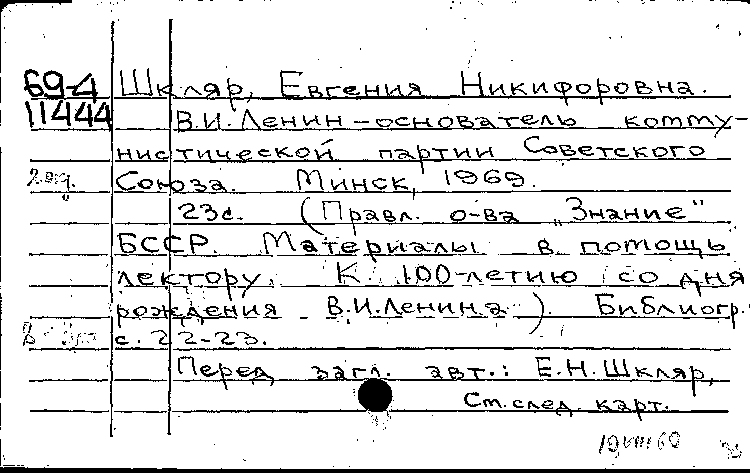 69-4 Шкляр, Евгения Никифоровна.
11444 В.И.Ленин – основатель комму-
нистической партии Советского
2 экз. Союза. Минск, 1969.
23с. (Правл. о-ва „Знание"
БССР. Материалы в помощь
лектору. К 100-летию со дня
рождения В.И.Ленина). Библиогр.:
с. 22-23.
Перед загл. авт.: Е.Н.Шкляр,
См. след. карт.